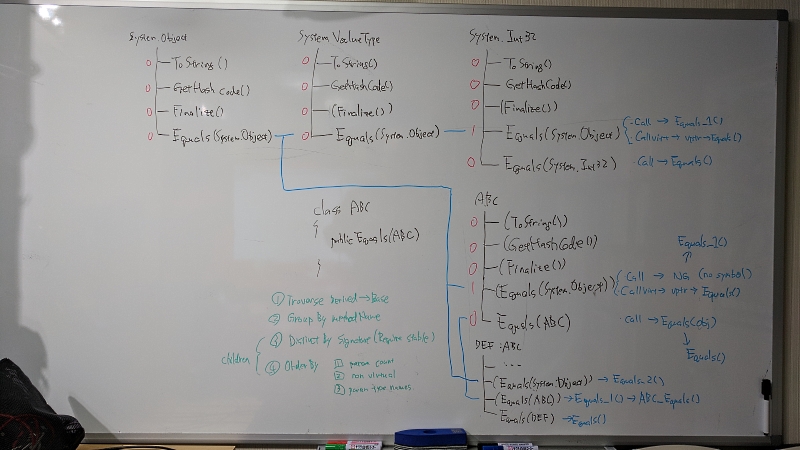 System.Object
0 ToString()
0 GetHashCode()
0 Finalize()
0 Equals(System.Object)
System.ValueType
0 ToString()
0 GetHashCode()
0 (Finalize())
0 Equals(System.Object)
System.Int32
0 ToString()
0 GetHashCode()
0 (Finalize())
1 Equals(System.Object)
・Call → Equals_1()
・Callvirt → vptr → Equals()
0 Equals(System.Int32) ・Call → Equals()
class ABC
{
public Equals(ABC)
}
ABC
0 (ToString())
0 (GetHashCode())
0 (Finalize())
1 (Equals(System.Object))
Equals_1()
・Call → NG (no symbol)
・Callvirt → vptr → Equals()
0 Equals(ABC) ・call → Equals(obj)
Equals()
DEF : ABC
...
(Equals(System.Object)) → Equals_2()
(Equals(ABC)) → Equals_1() → ABC_Equals()
Equals(DEF) → Equals()
① Traverse derived → Base
② Group By method Name
children
③ Distinct by Signature (Require stable)
④ OrderBy
1 param count
2 non virtual
3 param type names